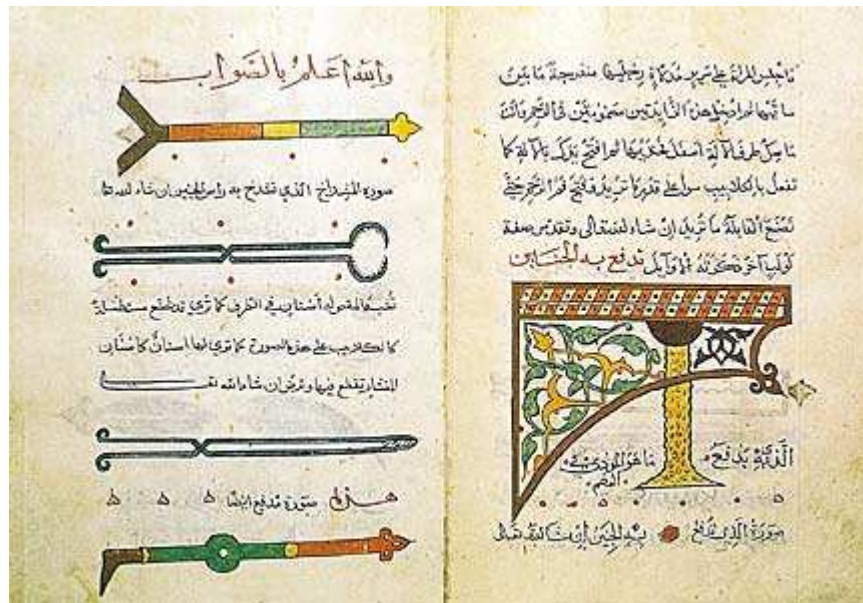 فاجلس المرأة على سرير مدلاة رجليها منفرجة ما بين
ساقيها ثم ادخل هذين الزايدتين مضمومتين في الرحم وانت
ماسك طرف الآلة اسفل فخذيها ثم افتح يدك بالآلة كما
تفعل بالكلاليب سوا على قدر ما تريد فتح فم الرحم حتى
تصنع القابلة ما تريد ان شاء الله تعالى وتقدم صفة
لولب آخر ذكرته الأوايل تدفع به
يدفع
الفم
صورة الذي يدفع به الجنين إن شاء الله تعالى
والله اعلم بالصواب
صورة المشداخ الذي تشدخ به راس الجنين ان شاء الله تعا
تشبه المقص له أسنان في الطرف كما ترى وقد تصنع مستطيلة
كالكلاليب على هذه الصورة كما ترى لها اسنان كاسنان
المنشار تقطع فيها وترض ان شاء الله تعـ
هذه صورة مدفع ايضا